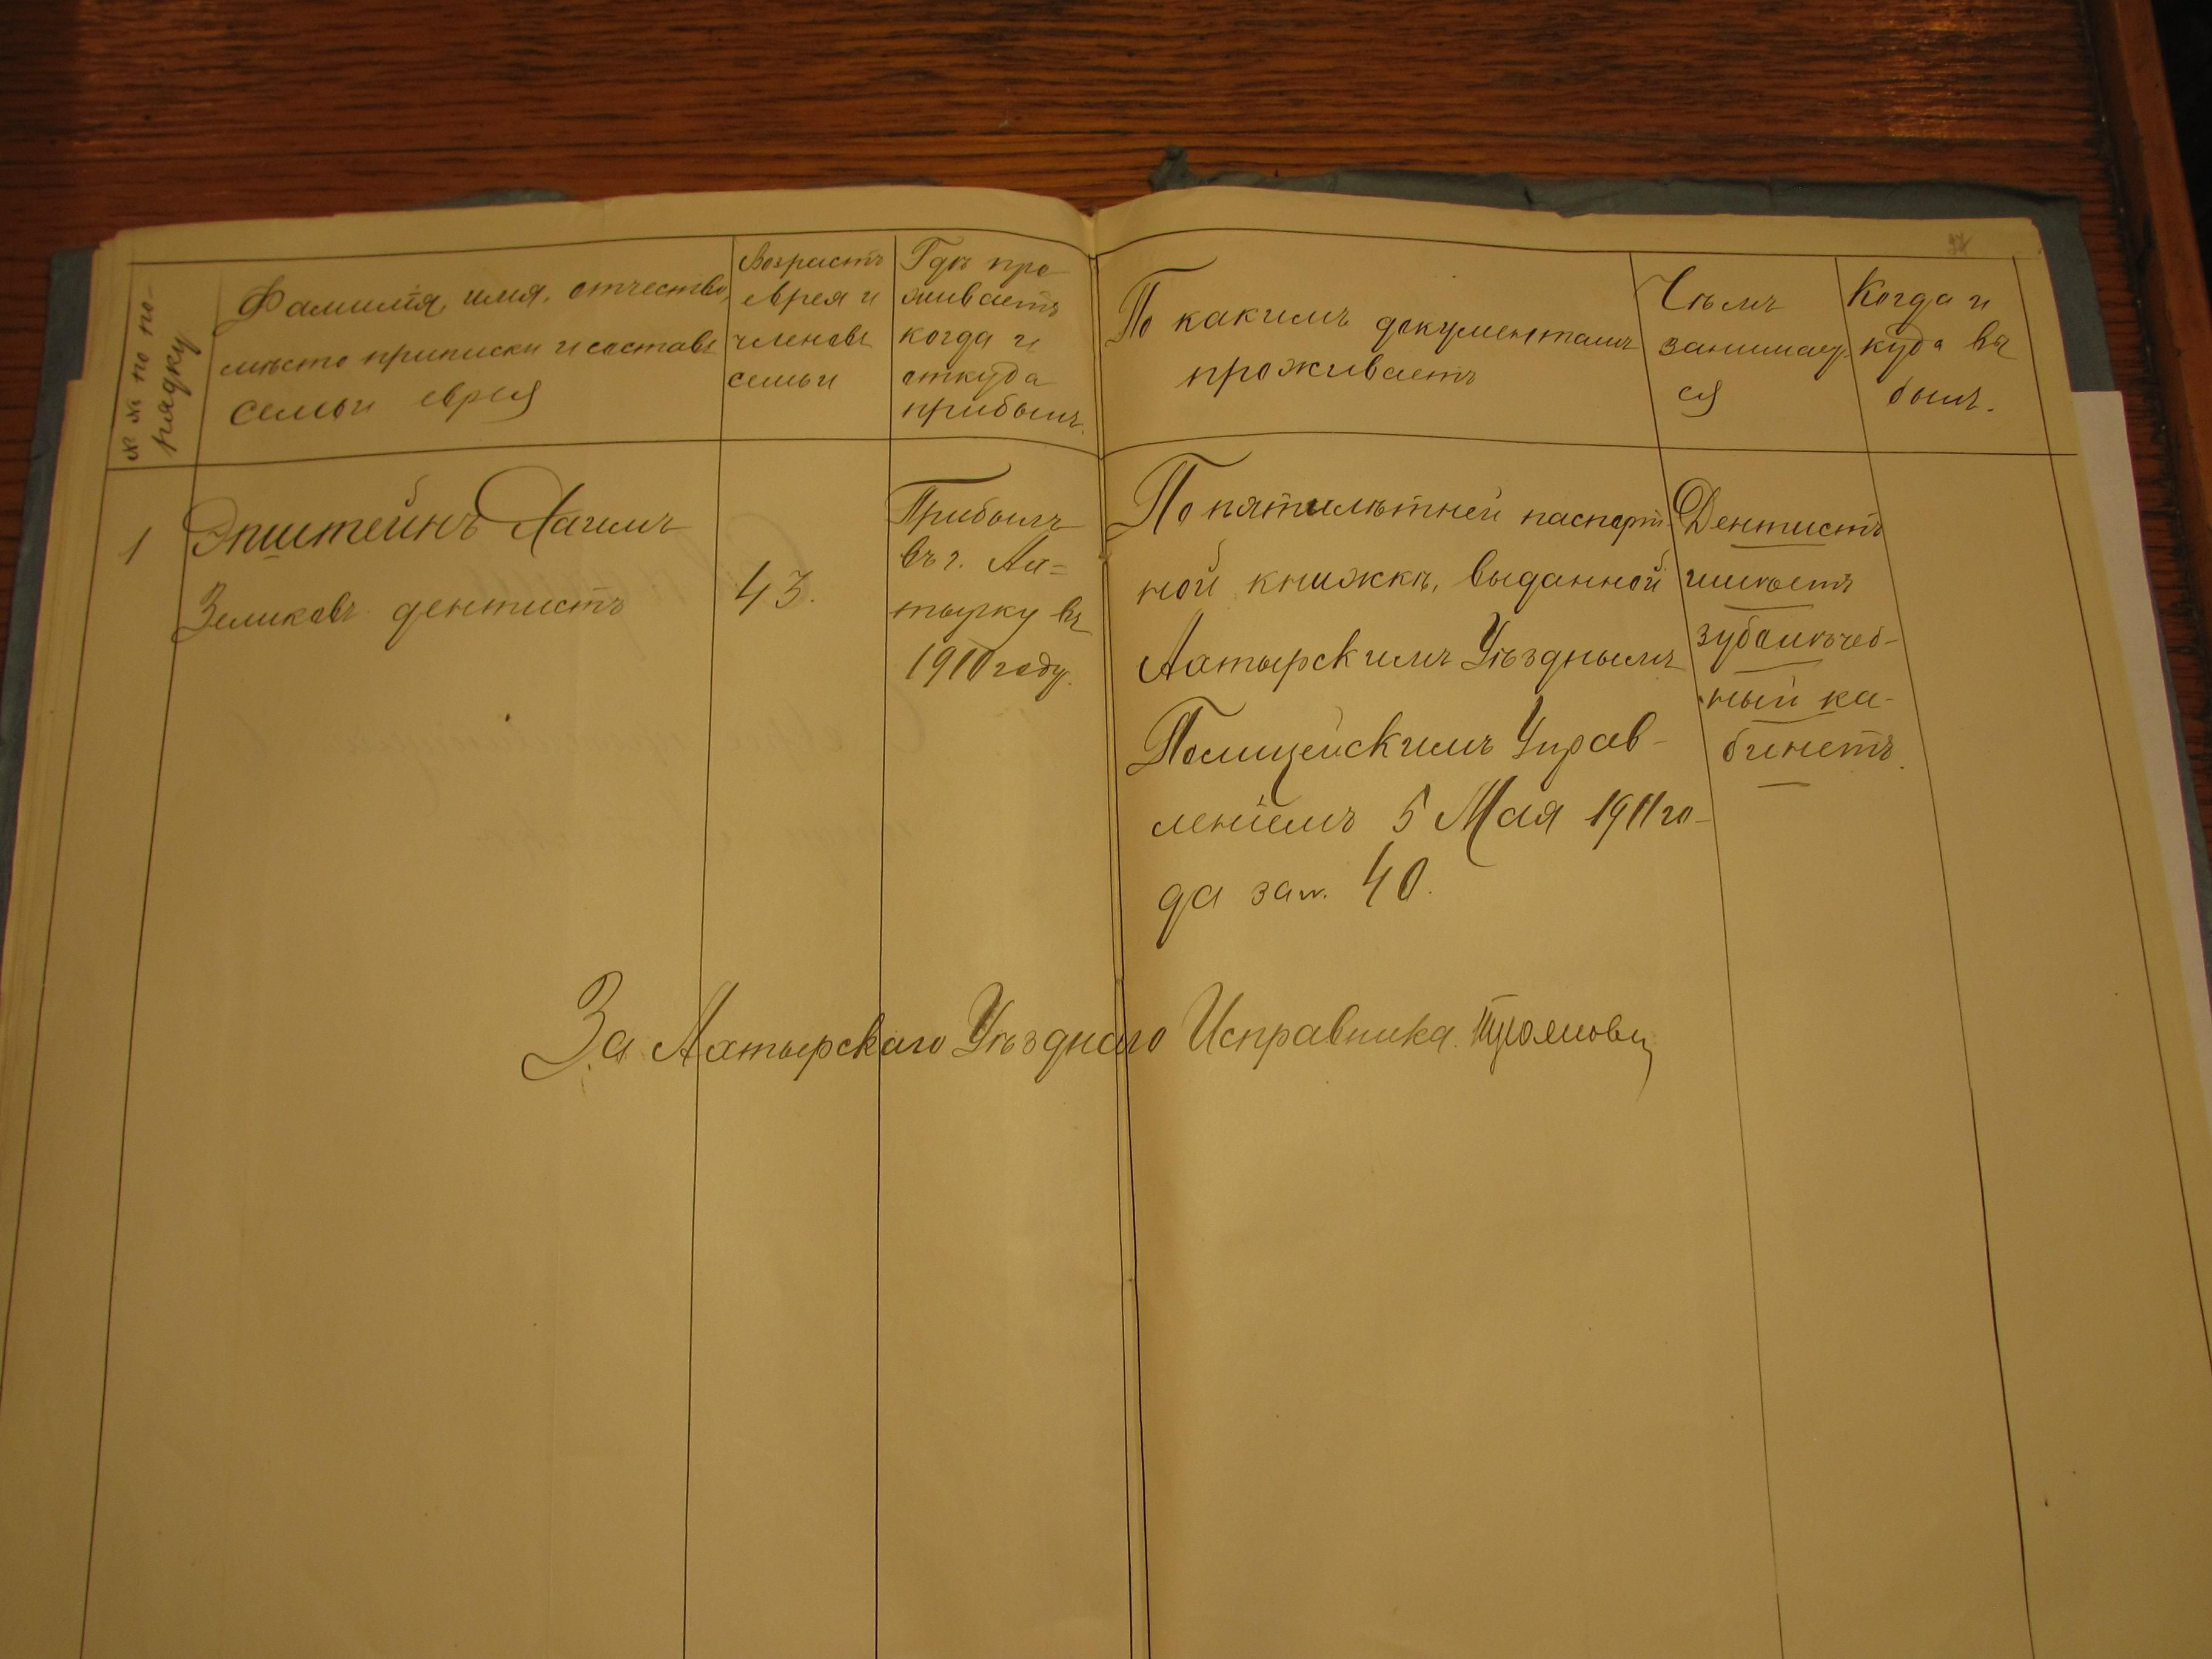 №№ по по-
рядку
Фамилія, имя, отчество,
мѣсто приписки и составъ
семьи еврея
Возрастъ
еврея и
членовъ
семьи
Гдѣ про
живаетъ
когда и
откуда
прибылъ.
По какимъ документамъ
проживаетъ
Чѣмъ
занимает
ся
Когда и
куда вы
былъ.
1
Эпштейнъ Хаимъ
Зеликовъ дентистъ
43.
Прибылъ
въ г. Ах=
тырку въ
1910 году.
По пятилѣтней паспорт
ной книжкѣ, выданной
Ахтырскимъ Уѣзднымъ
Полицейскимъ Управ-
леніемъ 5 Мая 1911 го-
да за №. 40.
Дентистъ
имѣетъ
зуболѣчеб-
ный ка-
бинетъ.
За Ахтырскаго Уѣзднаго Исправника